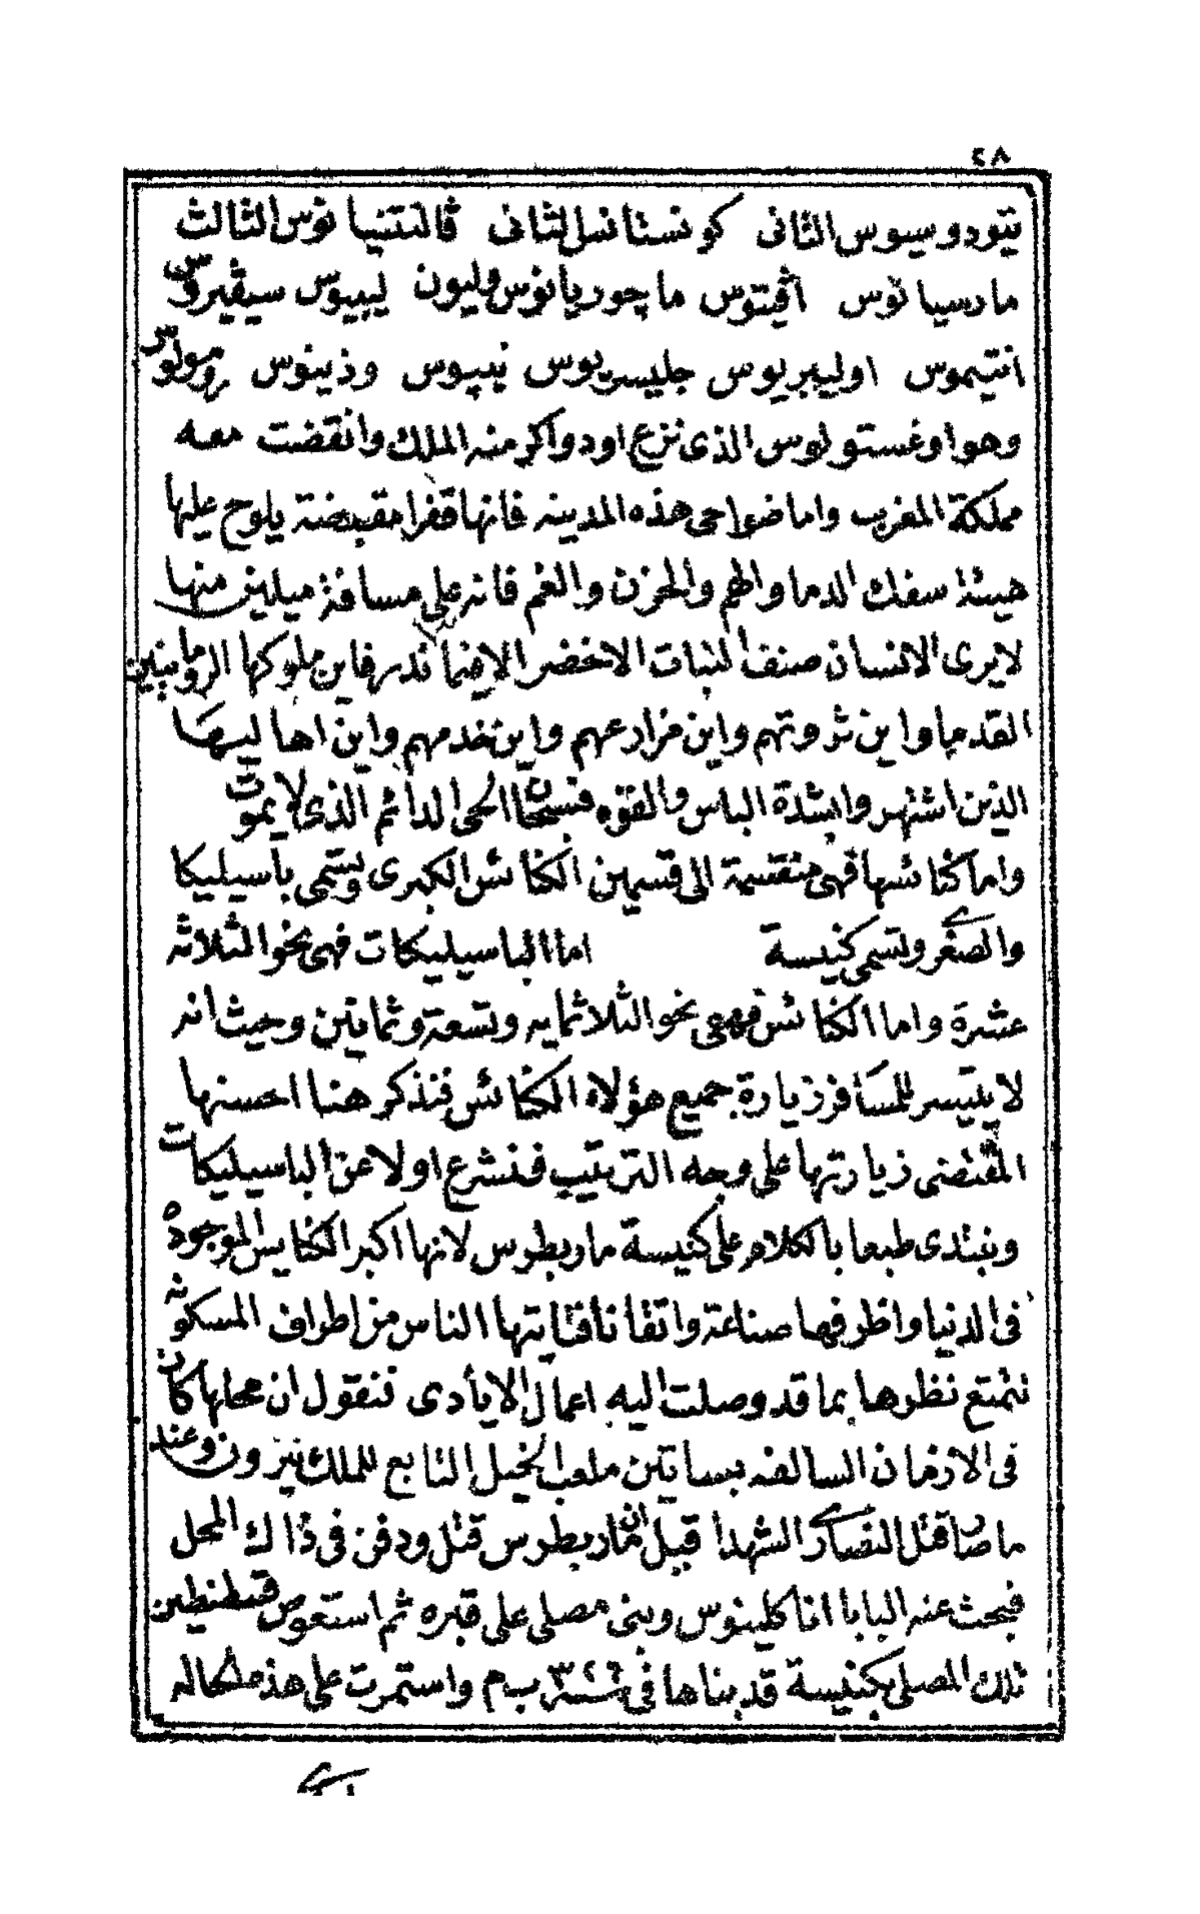 ٢٨
تيودوسيوس الثانى كونستانسل الثانى ڤالنتنيانوس الثالث
مارسيانوس اڤيتوس ماجوريانوس وليون ليبيوس سيڤيروس
انتيموس اوليبريوس جليسريوس نيپوس وذينوس رومولوس
وهو اوغستولوس الذى نزع اودواكر منه الملك وانقضت معه
مملكة المغرب واما ضواحى هذه المدينه فانها قفرا مقبضنة يلوح عليها
هيئة سفك الدما والهم والحزن والغم فانه على مسافة ميلين منها
لا يرى الانسان صنف النبات الاخضر الا فيما ندر فاين ملوكها الرومانيين
القدما واين ثروتهم واين مزارعهم واين خدمهم واين اهاليها
الذين اشتهروا بشدة الباس والقوه فسبحان الحى الدائم الذى لا يموت
واما كنائسها فهى منقسمة الى قسمين الكنائس الكبرى وتسمى باسيليكا
والصغرى وتسمى كنيسة اما الباسيليكات فهى نحو الثلاثه
عشرة واما الكنائس فهى نحو الثلاثمايه وتسعة وثمانين وحيث انه
لا يتيسر للمسافر زيارة جميع هؤلاء الكنائس فنذكر هنا احسنها
المقتضى زيارتها على وجه الترتيب فنشرع اولا عن الباسيليكات
ونبتدى طبعا بالكلام على كنيسة مار بطرس لانها اكبر الكنايس الموجوده
فى الدنيا واظرفها صناعة واتقانا فتاتيها الناس من اطراف المسكونه
تتمتع نظرها بما قد وصلت اليه اعمال الايادى فنقول ان محلها كان
فى الازمان السالفه بساتين ملعب الخيل التابع للملك نيرون وعند
ما صار قتل النصارى الشهدا قيل ان مار بطرس قتل ودفن فى ذاك المحل
فبحث عنه البابا اناكلينوس وبنى مصلى على قبره ثم استعوض قسطنطين
تلك المصلى بكنيسة قد بناها فى سنة ٣٢٦ ب م واستمرت على هذه الحاله